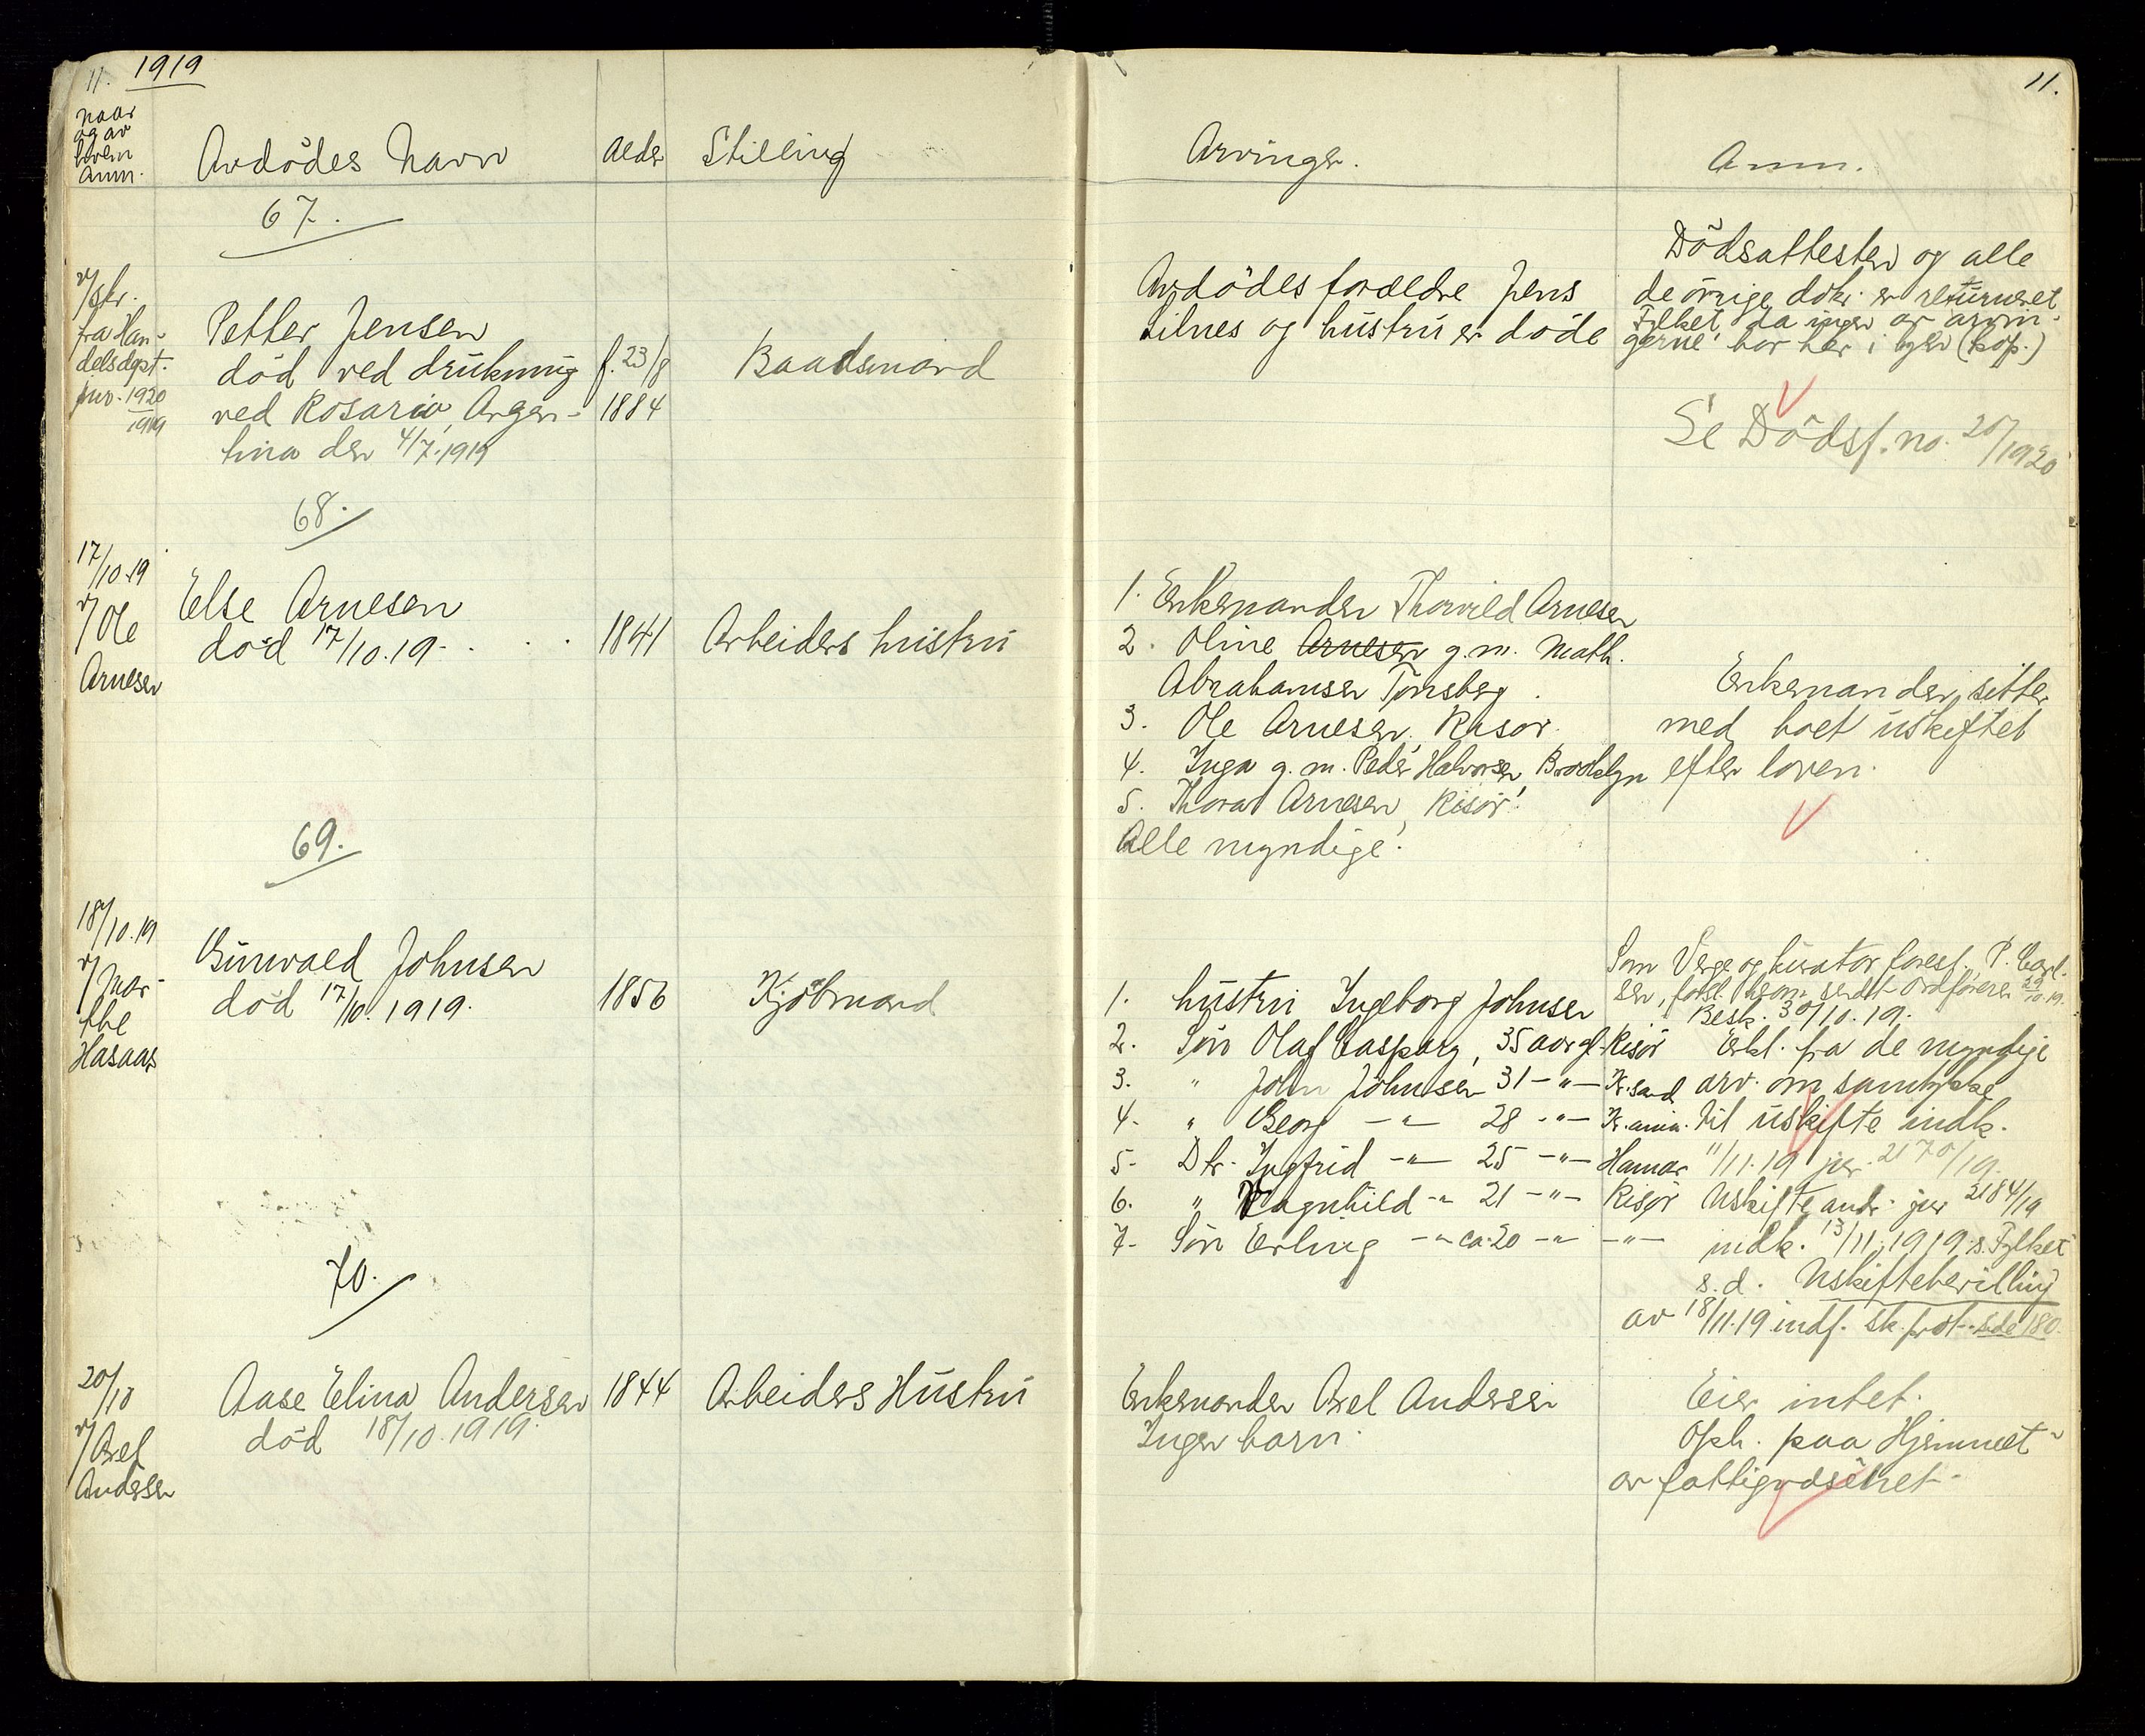 11. 1919
naar
og av
hvem
anm.
Avdødes Navn
Alder
Stilling
67.
v/skr.
fra Han-
delsdept.
jnr. 1920
1919
Petter Jensen
død ved drukning
ved Rosario, Argen-
tina den 4/7.1919
f. 23/8
1884
Baadsmand
68.
17/10.19
v/Ole
Arnesen
Else Arnesen
død 17/10.19.
1841
Arbeiders hustru
69.
18/10.19
v/Mar-
the
Hasaas
Gunvald Johnsen
død 17/10.1919.
1856
Kjøbmand
70.
20/10
v/Axel
Andersen
Aase Elina Andersen
død 18/10.1919.
1844
Arbeiders Hustru
11.
Arvinger.
Anm.
Avdødes forældre Jens
Silnes og hustru er døde
Dødsattesten og alle
de øvrige dok. er returneret
Fylket, da ingen av arvin-
gerne bor her i byen (kop.)
Se Dødsf. no. 20/1920
1. Enkemanden Thorvild Arnesen
2. Oline Arnesen g.m. Math.
Abrahamsen Tønsberg.
3. Ole Arnesen, Risør.
4. Inga g.m. Peder Halvorsen, Brooklyn
5. Thora Arnesen, Risør.
Alle myndige.
Enkemanden sitter
med boet uskiftet
efter loven.
1. hustru Ingeborg Johnsen
2. Søn Olaf Caspary, 35 aar gl. Risør
3. " John Johnsen 31 -"- Kr.sand
4. " Georg -"- 28 -"- Kr.ania.
5. Dtr. Ingfrid -"- 25 -"- Hamar
6. " Ragnhild -"- 21 -"- Risør
7. Søn Erling -"- ca. 20 -"- -"-
Som Verge og kurator forest. P. Carl-
sen, forsl. herom sendt Ordføreren 29/10.19.
Besk. 30/10.19.
Erkl. fra de myndige
arv. om samtykke
til uskifte indk.
11/11.19 jnr. 2170/19.
Uskifte andr. jnr 2184/19
indk. 13/11.1919 s. Fylket
s.d. Uskiftebevilling
av 18/11.19 indf. sk.prot. side 180.
Enkemanden Axel Andersen
Ingen barn.
Eier intet.
Oph. paa Hjemmet
av fattigvæsenet.